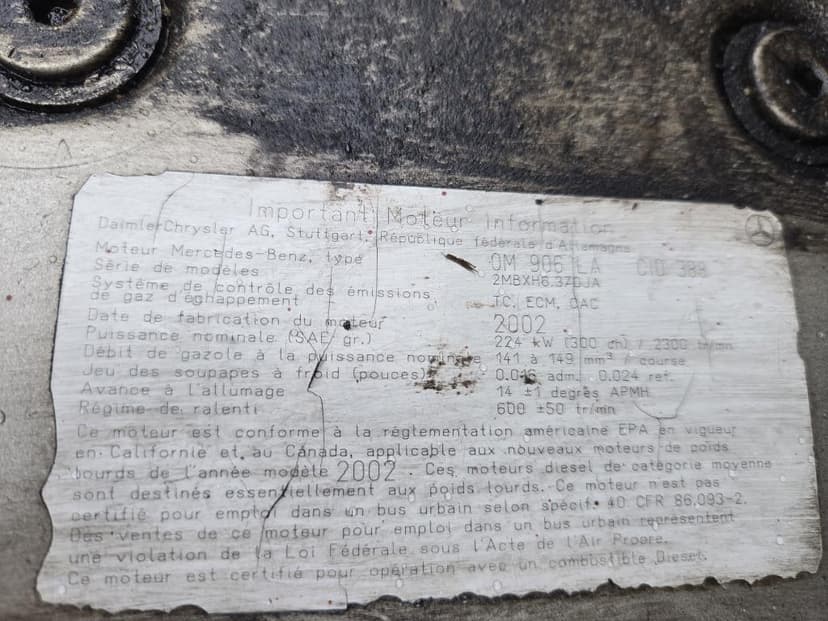 Important Moteur Information
DaimlerChrysler AG, Stuttgart, République fédérale d'Allemagne
Moteur Mercedes-Benz, type OM 906 LA CID 388
Série de modèles 2MBXH6.37DJA
Système de contrôle des émissions
de gaz d'échappement TC, ECM, CAC
Date de fabrication du moteur 2002
Puissance nominale (SAE gr.) 224 kW (300 ch) / 2300 tr/mn
Débit de gazole à la puissance nominale 141 à 149 mm³ / course
Jeu des soupapes à froid (pouces) 0.016 adm. 0.024 ref.
Avance à l'allumage 14 ±1 degrès APMH
Régime de ralenti 600 ±50 tr/min
Ce moteur est conforme à la réglementation américaine EPA en vigueur
en Californie et au Canada, applicable aux nouveaux moteurs de poids
lourds de l'année modèle 2002. Ces moteurs diesel de catégorie moyenne
sont destinés essentiellement aux poids lourds. Ce moteur n'est pas
certifié pour emploi dans un bus urbain selon spécif. 40 CFR 86.093-2.
Des ventes de ce moteur pour emploi dans un bus urbain représentent
une violation de la Loi Fédérale sous l'Acte de l'Air Propre.
Ce moteur est certifié pour opération avec un combustible Diesel.